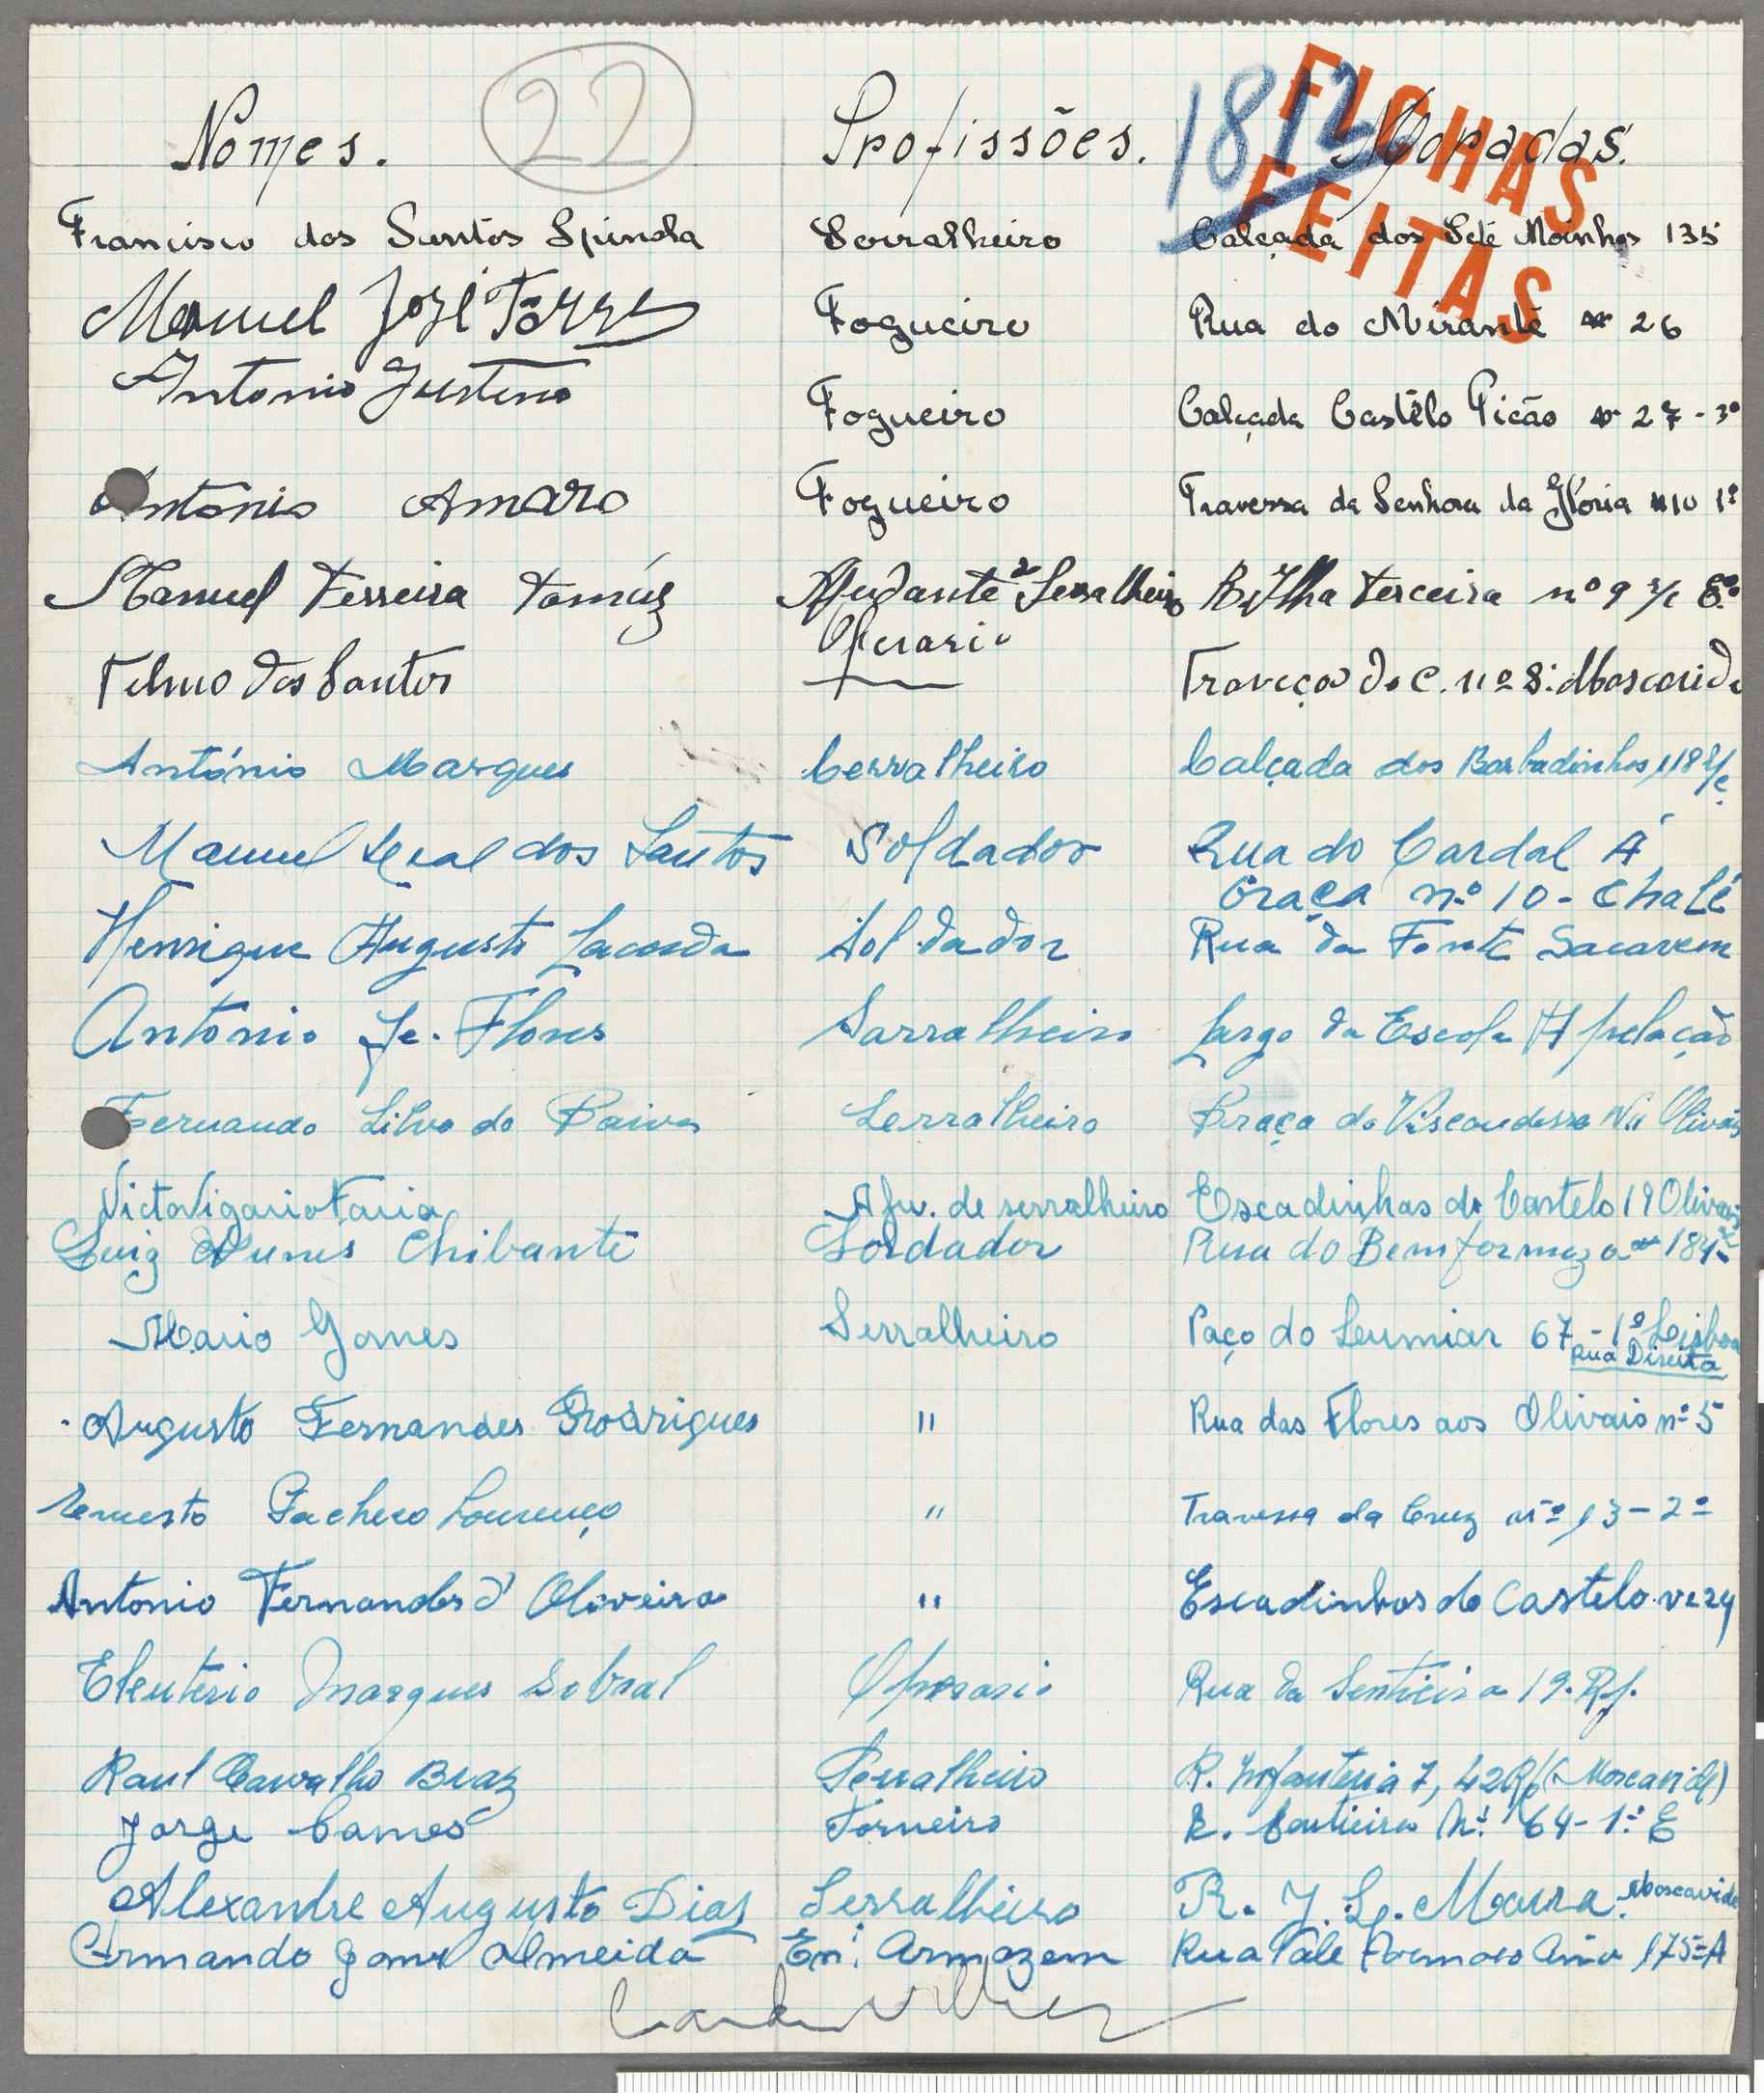 22
1812
FICHAS FEITAS
Nomes. Profissões. Moradas.
Francisco dos Santos Spinola Serralheiro Calçada dos Sete Moinhos 135
Manuel José Torres Fogueiro Rua do Mirante nº 26
Antonio Justino Fogueiro Calçada Castélo Picão nº 27-3º
Antonio Amaro Fogueiro Travessa da Senhora da Glória nº 10 1º
Manuel Ferreira Tomáz Ajudante de Serralheiro R. Ilha Terceira nº 9 r/c Eº
Telmo dos Santos Operario Traveça do C. nº 8: Moscavide
António Marques Cerralheiro Calçada dos Barbadinhos, 118 r/c
Manuel Leal dos Santos Soldador Rua do Cardal Á
Graça nº 10 - Chalé
Henrique Augusto Lacerda Soldador Rua da Fonte Sacavem
Antonio Je. Flores Sarralheiro Largo da Escola Apelação
Fernando Silva do Paiva Serralheiro Praça da Viscondessa Olivais
Victo Vigario Faria Aju. de serralheiro Escadinhas do Castelo 19 Olivais
Luiz Nunes Chibante Soldador Rua do Bemformozo nº 184
Mario Gomes Serralheiro Paço do Leumiar 67-1º Lisboa
Rua Direita
Augusto Fernandes Rodrigues " Rua das Flores aos Olivais nº 5
Ernesto Pacheco Lourenço " Travessa da Cruz nº 13-2º
Antonio Fernandes d' Oliveira " Escadinhas do Castelo
Eleuterio Marques Sobral Operario Rua da Sentieira 19. R/.
Raul Carvalho Braz Serralheiro R. Infanteria 7, 42 R/c (Moscavide)
Jorge Torneiro R. Centieira Nº 64-1º E
Alexandre Augusto Dias Serralheiro R. J. Lp. Moura. Moscavide
Armando Gomes Almeida En. Armazem Rua Vale Formoso 175-A